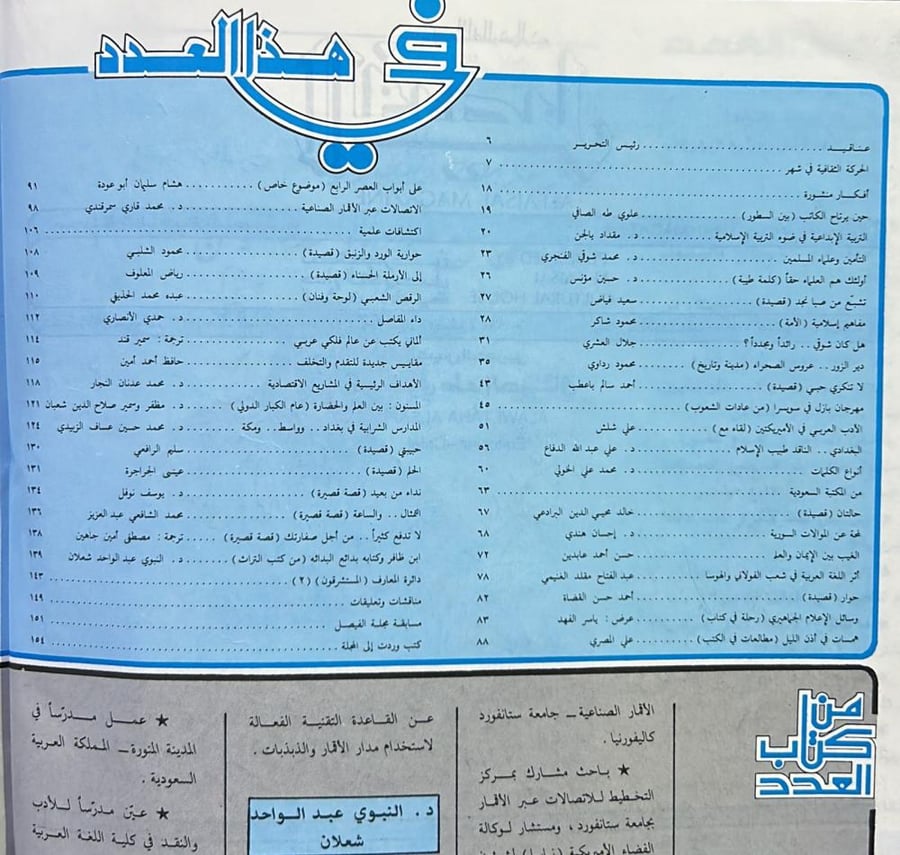 في هذا العدد
عناقيد ........ رئيس التحرير ٦
الحركة الثقافية في شهر ........ ٧
أفكار منشورة ........ ١٨
حين يرتاح الكاتب (بين السطور) ........ علوي طه الصافي ١٩
التربية الإبداعية في ضوء التربية الإسلامية ........ د. مقداد يالجن ٢٠
التأمين وعلماء المسلمين ........ د. محمد شوقي الفنجري ٢٣
أولئك هم العلماء حقاً (كلمة طيبة) ........ د. حسين مؤنس ٢٦
تشبّع من صبا نجد (قصيدة) ........ سعيد فياض ٢٧
مفاهيم إسلامية (الأمة) ........ محمود شاكر ٢٨
هل كان شوقي .. رائداً ومجدداً؟ ........ جلال العشري ٣١
دير الزور .. عروس الصحراء (مدينة وتاريخ) ........ محمود رداوي ٣٥
لا تنكري حبي (قصيدة) ........ أحمد سالم باعطب ٤٣
مهرجان بازل في سويسرا (من عادات الشعوب) ........ ٤٥
الأدب العربي في الأمريكتين (لقاء مع) ........ علي شلش ٥١
البغدادي .. الناقد طبيب الإسلام ........ د. علي عبد الله الدفاع ٥٦
أنواع الكلمات ........ د. محمد علي الخولي ٦٠
من المكتبة السعودية ........ ٦٣
حالتان (قصيدة) ........ خالد محيي الدين البرادعي ٦٧
لمحة عن الموالات السورية ........ د. إحسان هندي ٦٨
الغيب بين الإيمان والعلم ........ حسن أحمد عابدين ٧٢
أثر اللغة العربية في شعب الفولاني والهوسا ........ عبد الفتاح مقلد الغنيمي ٧٨
حوار (قصيدة) ........ أحمد حسن القضاة ٨٢
وسائل الإعلام الجماهيري (رحلة في كتاب) ........ عرض: ياسر الفهد ٨٣
همسات في أذن الليل (مطالعات في الكتب) ........ علي المصري ٨٨
على أبواب العصر الرابع (موضوع خاص) ........ هشام سليمان أبو عودة ٩١
الاتصالات عبر الأقمار الصناعية ........ د. محمد قاري سمرقندي ٩٨
اكتشافات علمية ........ ١٠٦
حوارية الورد والزنبق (قصيدة) ........ محمود الشلبي ١٠٨
إلى الأرملة الحسناء (قصيدة) ........ رياض المعلوف ١٠٩
الرقص الشعبي (لوحة وفنان) ........ عبده محمد الحذيفي ١١٠
داء المفاصل ........ د. حمدي الأنصاري ١١٢
ألماني يكتب عن عالم فلكي عربي ........ ترجمة: سمير قند ١١٤
مقاييس جديدة للتقدم والتخلف ........ حافظ أحمد أمين ١١٥
الأهداف الرئيسية في المشاريع الاقتصادية ........ د. محمد عدنان النجار ١١٨
المسنون: بين العلم والحضارة (عام الكبار الدولي) ........ د. مظفر وسمير صلاح الدين شعبان ١٢١
المدارس الشرابية في بغداد.. وواسط.. ومكة ........ د. محمد حسين عساف الزبيدي ١٢٤
حبيبتي (قصيدة) ........ سليم الرافعي ١٣٠
الحلم (قصيدة) ........ عيسى الجراجرة ١٣١
نداء من بعيد (قصة قصيرة) ........ د. يوسف نوفل ١٣٤
التمثال .. والساعة (قصة قصيرة) ........ محمد الشافعي عبد العزيز ١٣٦
لا تدفع كثيراً .. من أجل صفارتك (قصة قصيرة) ........ ترجمة: مصطفى أمين جاهين ١٣٨
ابن ظافر وكتابه بدائع البدائه (من كتب التراث) ........ د. النبوي عبد الواحد شعلان ١٣٩
دائرة المعارف (المستشرقون) (٢) ........ ١٤٣
مناقشات وتعليقات ........ ١٤٩
مسابقة مجلة الفيصل ........ ١٥١
كتب وردت إلى المجلة ........ ١٥٤
من كتاب العدد
الأقمار الصناعية ــ جامعة ستانفورد
كاليفورنيا .
★ باحث مشارك بمركز
التخطيط للاتصالات عبر الأقمار
بجامعة ستانفورد ، ومستشار لوكالة
الفضاء الأمريكية
عن القاعدة التقنية الفعالة
لاستخدام مدار الأقمار والذبذبات .
د . النبوي عبد الواحد
شعلان
★ عمل مدرّساً في
المدينة المنورة ــ المملكة العربية
السعودية .
★ عيّن مدرّساً للأدب
والنقد في كلية اللغة العربية